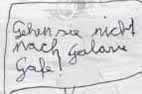 Gehen sie nicht
nach Galame
Gafe!